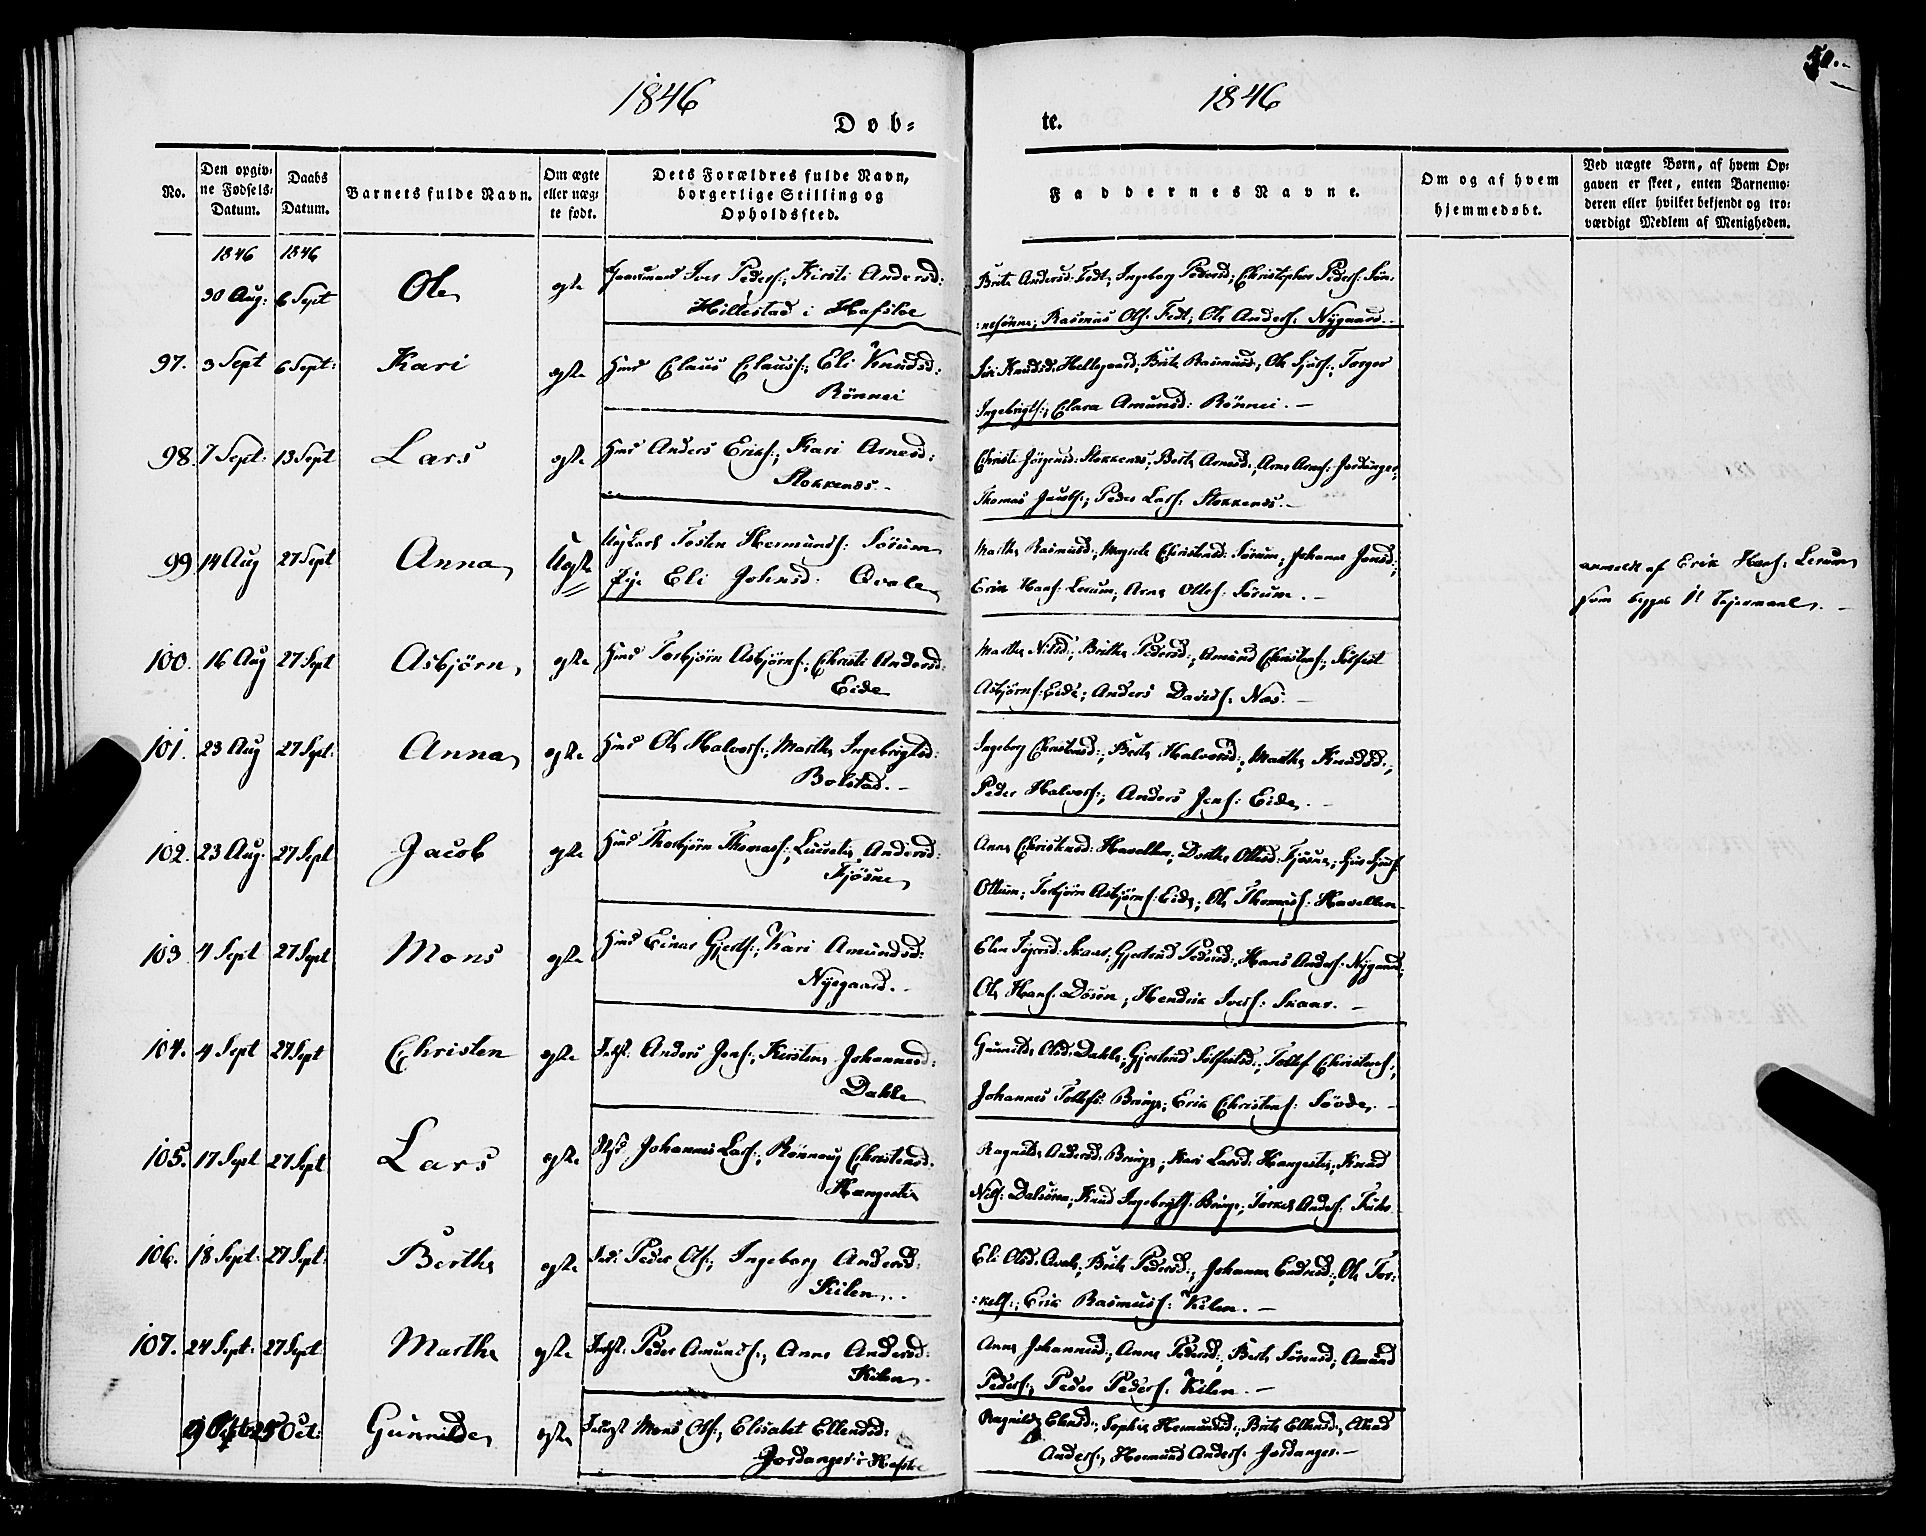 50.
1846
1846
Døb-
te.
No.
Den opgiv-
ne Fødsels-
Datum.
Daabs
Datum.
Barnets fulde Navn.
Om ægte
eller uæg-
te født.
Dets Forældres fulde Navn,
borgerlige Stilling og
Opholdssted.
Faddernes Navne.
Om og af hvem
hjemmedøbt.
Ved uægte Børn, af hvem Op-
gaven er skeet, enten Barnemo-
deren eller hvilket bekjendt og tro-
værdigt Medlem af Menigheden.
1846 1846
30 Aug: 6 Sept Ole ægte Iver Peders:, Kirsti Andersd:
Hillestad i Hafsloe
Brita Andersd: Fedt, Ingeborg Pedersd:, Christopher Peders:
Rasmus Ols: Fedt, Ole Anders: Nygaard.
97. 3 Sept 6 Sept: Kari ægte Hmd Claus Clauss:, Eli Knudsd:
Rönnei
Knudsd: Hellegaard, Brita Rasmusd:, Ole Torger
Ingebrigts:, Clara Amundsd: Rönnei. –
98. 7 Sept: 13 Sept Lars ægte Hmd Anders Eriks:, Kari Arnesd:
Stokkenæs. –
Christi Jörgensd: Stokkenæs, Berta Arnesd:, Arne Arnes: Jordanger,
Thomas Jacobs:, Peder Lars: Stokkenæs. –
99. 14 Aug 27 Sept Anna Uægte Ungkarl Tosten Hermunds: Sörum
Pige Eli Johnsd: Qvale
Martha Rasmusd:, Christensd: Sörum, Johanna Jonsd:,
Erik Hans: Lerum, Arne Ottes: Sörum. –
anmeldt af Erik Hans: Lerum
som begges 1st Leiermaal. –
100. 16 Aug 27 Sept Asbjörn, ægte Hmd Torbjörn Asbjörns:, Christi Andersd:
Eide
Martha Nilsd:, Britha Pedersd:, Amund Christens:, Solfest
Asbjörns: Eide, Anders Davids: Næs. –
101. 23 Aug 27 Sept: Anna ægte Hmd Ole Halvors:, Martha Ingebrigtsd:
Bolstad. –
Ingeborg Christensd:, Berta Halvorsd:, Martha Knudsd:,
Peder Halvors:, Anders Jens: Eide. –
102. 23 Aug. 27 Sept Jacob ægte Hmd Thorbjörn Thomass:, Lucretia Andersd:
Fjösne
Anna Christensd: Havellen, Dorthe Ottesd: Fjösne,
Ottum, Torbjörn Asbjörns: Eide, Ole Thomass: Havellen
103 4 Sept 27 Sept Mons ægte Hmd Einar Gjerts:, Kari Amundsd:
Nyegaard. –
Elen Skaar, Gjertrud Pedersd:, Hans Anders: Nygaard,
Ole Hans: Dösen, Hendrik Ivers: Skaar. –
104. 4 Sept 27 Sept Christen ægte Anders Jens:, Kirsten Johannesd:
Dahle
Gunnilda Olsd: Dahle, Gjertrud Solfestsd:, Tollef Christens:,
Johannes Tollefs: Bringe, Erik Christens: Sövde. –
105. 17 Sept 27 Sept Lars ægte Johannes Lars:, Rönnaug Christensd:
Hangestis
Ragnilda Andersd: Bringe, Kari Larsd: Hangestis, Knud
Nils: Dalsören, Knud Ingebrigts: Bringe, Torkel Anders:
106. 18 Sept: 27 Sept: Bertha ægte Peder Ols:, Ingeborg Andersd:
Kilen. –
Eli Olsd: Qvale, Brita Pedersd:, Johanna Endresd:, Ole Tor-
:kels:, Erik Rasmuss: Kilen. –
107. 24 Sept: 27 Sept: Martha ægte Peder Amunds:, Anna Andersd:
Kilen. –
Anna Johannesd:, Anna Pedersd:, Berta Sörensd:, Amund
Peders:, Peder Peders: Kilen. –
25 Oct: Gunnilde ægte Mons Ols:, Elisabet Ellendsd:
Jordanger i Hafsloe
Ragnilda Sophia Hermundsd:, Brita Ellensd:,
Anders:, Hermund Anders: Jordanger. –